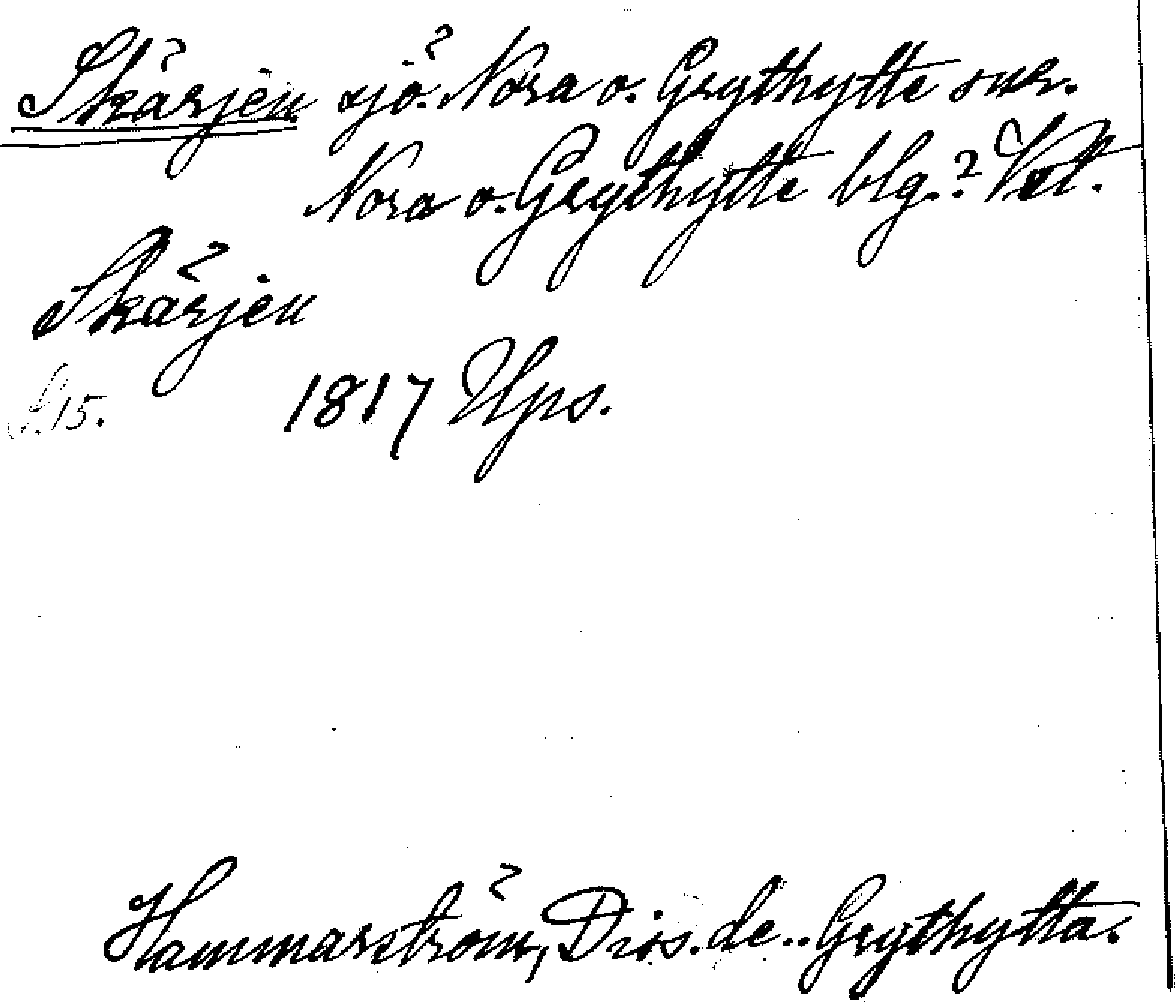 Skärjen sjö. Nora o. Grythytte snr.
Nora o. Grythytte blg.? Vstl.
Skärjen
S. 15.
1817 Ups.
Hammarström, Diss. de.. Grythytta.